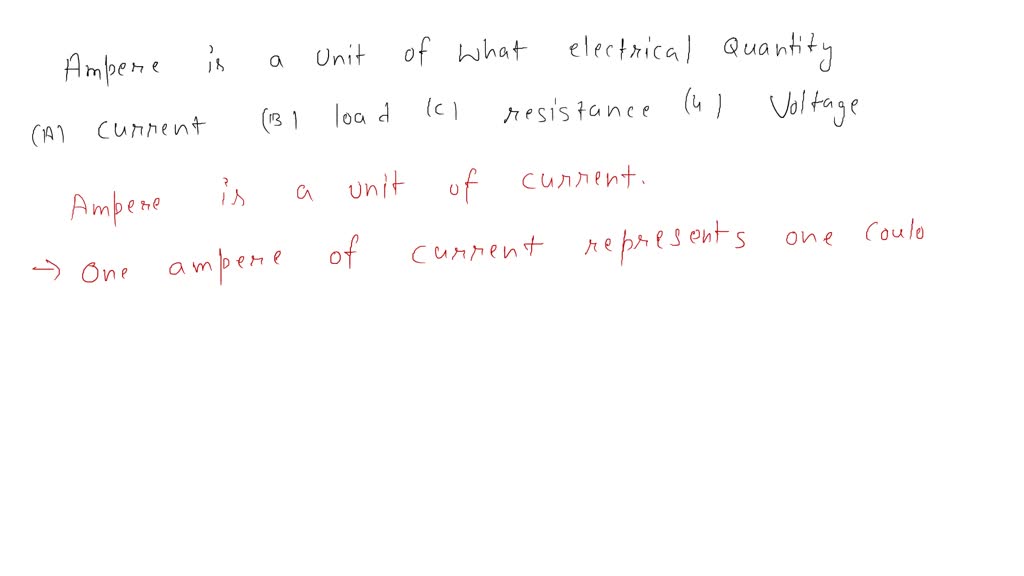 Ampere is a unit of what electrical Quantity
(A) current (B) load (C) resistance (4) Voltage
Ampere is a unit of current.
→ One ampere of current represents one coulo